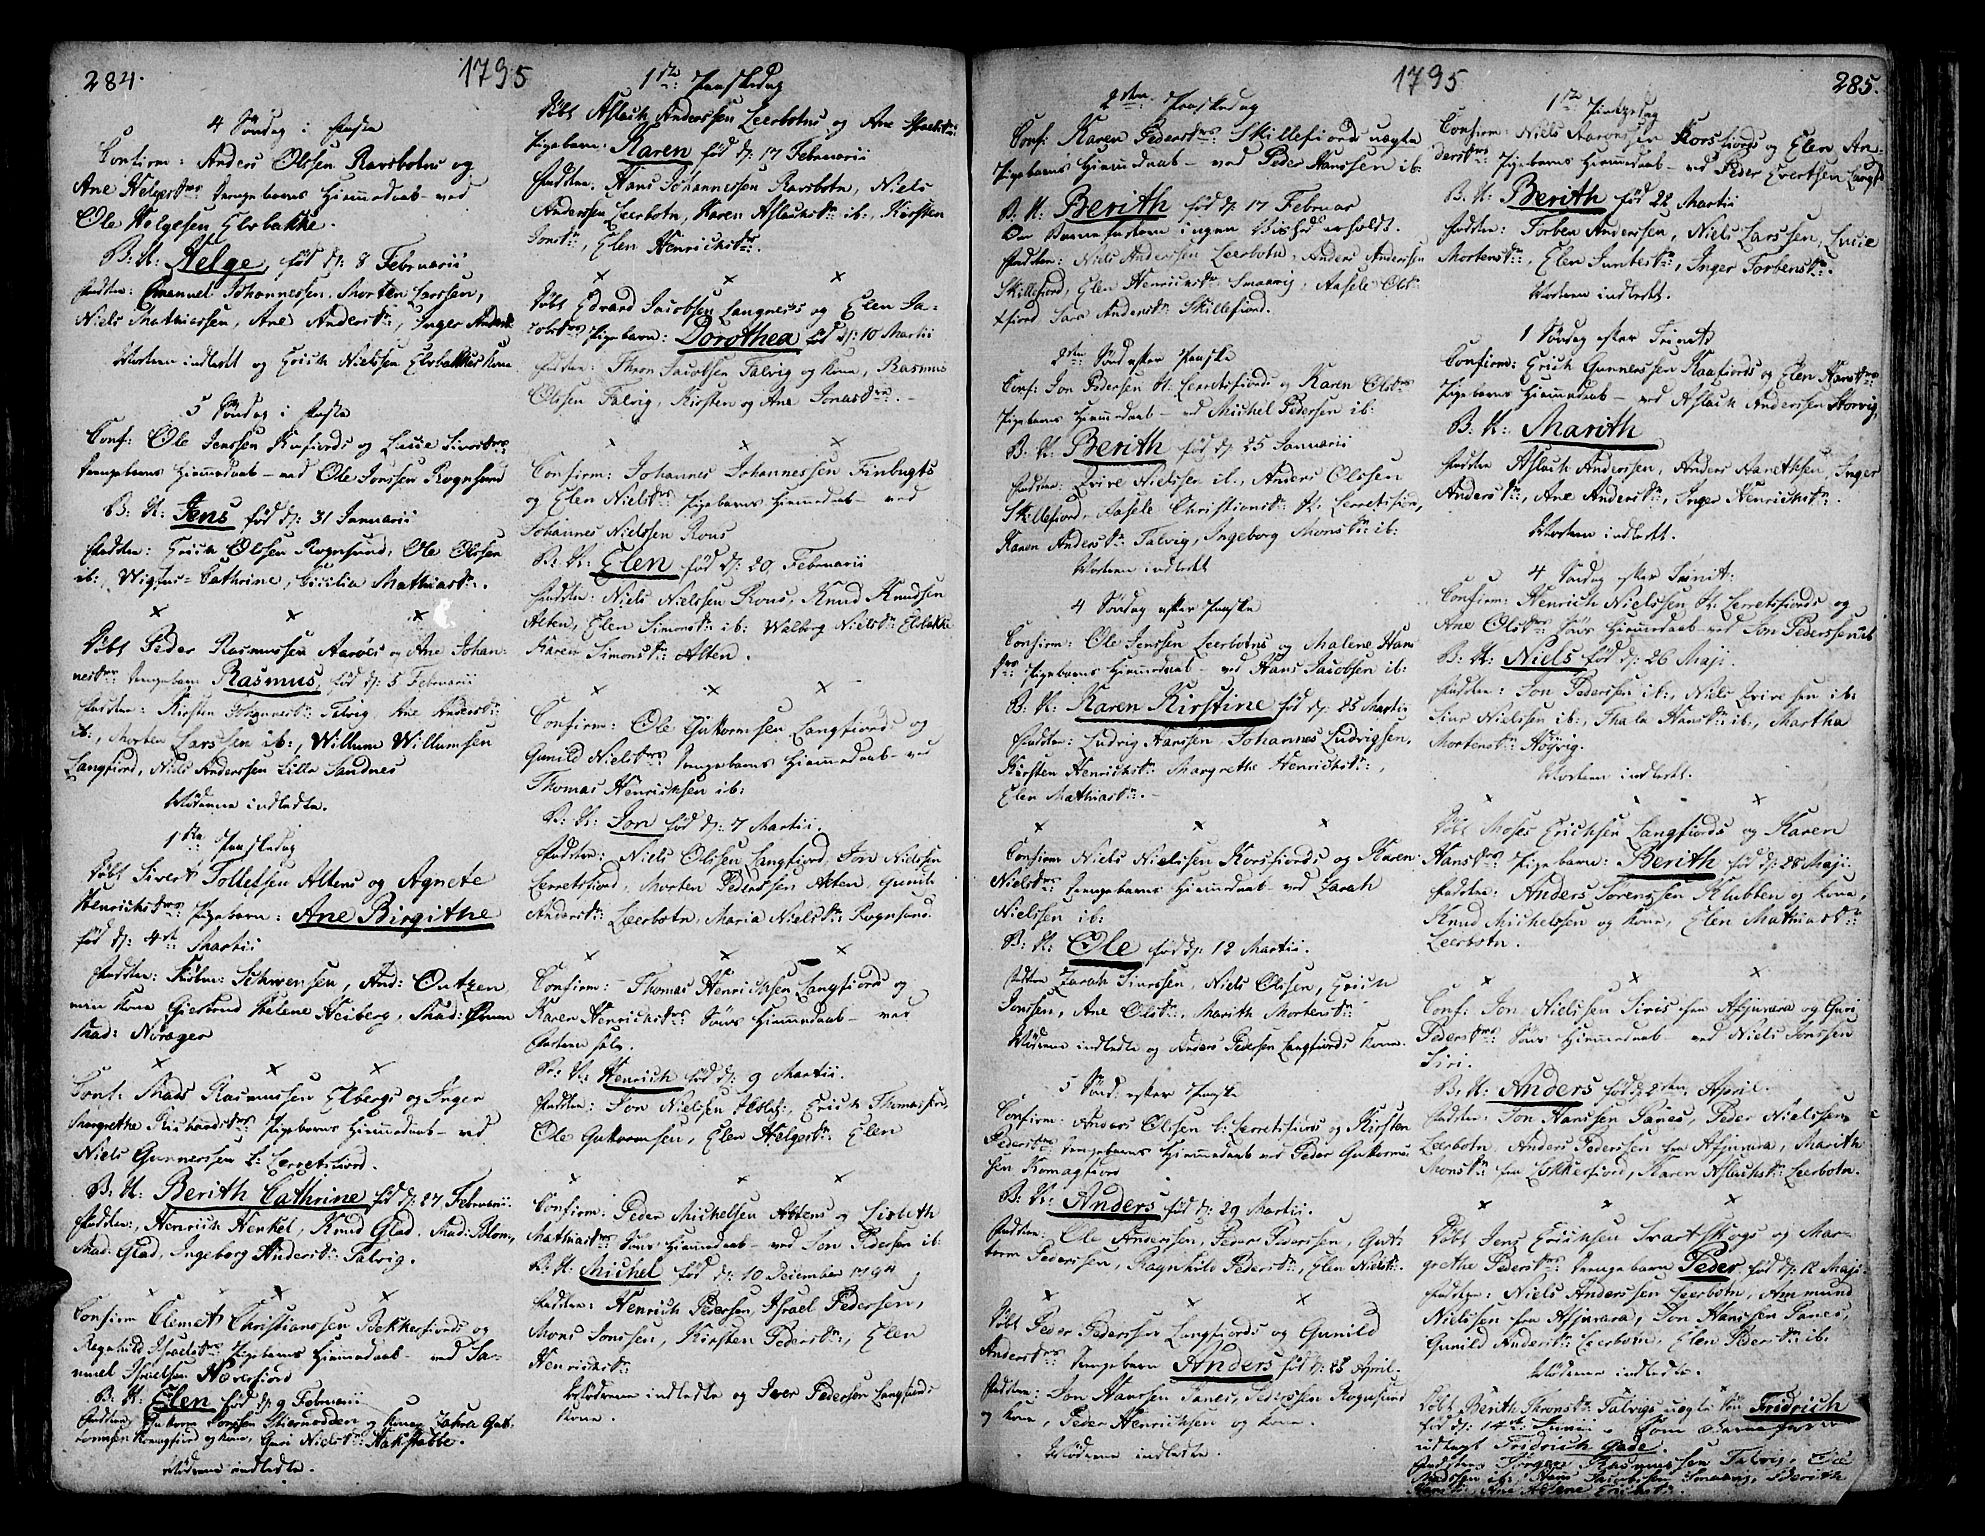 284.
1795
4 Søndag i Faste
Confirm: Anders Olsen Ravsbotns og
Ane Helgest: Drengebarns Hiemmedaab - ved
Ole Helgesen Elvebakke.
B: N: Helge, fød d: 8 Februarii
Fadder: Emanuel Johannessen, Morten Larssen,
Niels Mathiessen, Ane Andersd:, Inger Andersd:
Moderen indledt og Erich Nielssen Elvebakkes Kone
5 Søndag i Faste
Conf: Ole Jenssen Kaafiords og Lucie Siversd:
Drengebarns Hiemmedaab - ved Ole Jonssen Rognsund
B: N: Jens fød d: 31 Januarii
Fadder: Erich Olssen Rognsund, Ole Olssen
ib:, Cathrine, Cicilia Mathiasd:.
Døbt Peder Rasmussen Aarøes og Ane Johan-
nesd: Drengebarn Rasmus, fød d: 5 Februarii
Fadder: Kirsten Johannesd: Talvig, Ane Andersd:
ib:, Morten Larssen ib:, Willum Willumsen
Langfiord, Niels Anderssen Lille Sandnes
Mødrene indledte.
1ste Paaskedag
Døbt Sivert Tollefsen Altens og Agnete
Henrichsd: Pigebarn: Ane Birgithe
fød d: 4de Martii
Fadder: Schwensen, And: Outzen
Kone Giertrud Helene Heiberg, Mad:
Mad: Noræger
Conf: Mads Rasmussen Elbergs og Inger
Margrethe Richardsd: Pigebarns Hiemmedaab - ved
Niels Gunnerssen L: Lerretsfiord.
B: N: Berith Cathrine fød d: 27 Februarii.
Fadder:, Henrich Henkel, Knud Glad, Mad: Blom,
Mad: Glad, Ingeborg Andersd: Talvig.
Confirm Clemet Christianssen Bekkerfiords og
Ragnhild Israelsd: Pigebarns Hiemmedaab - ved Sa-
muel Israelsen Næverfiord
B: N: Elen fød d: 9 Februarii
Mødrene indledte.
1ste Paaskedag
Døbt Aslach Anderssen Leerbotns og Ane Israelsd:
Pigebarn: Karen fød d: 17 Februarii
Fadder: Hans Johannessen Ravsbotn, Niels
Anderssen Leerbotn, Karen Aslachsd: ib:, Kirsten
Jonsd:, Elen Henrichsd:.
Døbt Edvard Jacobsen Langnes's og Elen Ja-
cobsd: Pigebarn: Dorothea fød d: 10 Martii
Fadder: Thron Jacobsen Talvig og Kone, Rasmus
Olssen Talvig, Kirsten og Ane Jonasd:. -
Confirm: Johannes Johannessen Finbugts
og Elen Nielsd: Pigebarns Hiemmedaab - ved
Johannes Nielssen Rons
B: N: Elen fød d: 20 Februarii
Fadder: Niels Nielssen Rons, Knud Knudsen
Alten, Elen Simonsd: ib: Walborg Nielsd: Elvebakke
Karen Simonsd: Alten.
Confirm: Ole Guttormsen Langfiord og
Gunild Nielsd: Drengebarns Hiemmedaab - ved
Thomas Henrichsen ib:
B: N: Jon fød d: 7 Martii.
Fadder: Niels Olssen Langfiord, Jon Nielssen
Lerretsfiord, Morten Pederssen Alten, Gunild
Andersd: Leerbotn, Maria Nielsd: Rognsund.
Confirm: Thomas Henrichsen Langfiords og
Karen Henrichsd: Søns Hiemmedaab - ved
Faderen selv.
B: N: Henrich fød d: 9 Martii.
Fadder: Jon Nielssen, Erich Thomassen,
Ole Guttormsen, Elen Helgesd: Elen
Confirm: Peder Michelsen Altens og Lisbeth
Mathiasd: Søns Hiemmedaab - ved Jon Pedersen ib:
B: N: Michel fød d: 10 December 1794
Fadder: Henrich Pedersen, Israel Pedersen,
Mons Jonssen, Kirsten Pedersd:, Elen
Henrichsd:
Mødrene indledte og Iver Pederssøn Langfiords
Kone.
1795
285.
2den Paaskedag
Conf: Karen Pedersd: Skillefiord uægte
Pigebarns Hiemmedaab - ved Peder Hanssen ib:
B: N: Berith fød d: 17 Februar
Om Barnefaderen ingen Vished erholdt.
Fadder: Niels Anderssen Leerbotn, Anders Andersen
Skillefiord, Elen Henrichsd: Smaavig, Aasele Olsd:
fiord, Sara Andersd: Skillefiord.
2den Sønd: efter Paaske
Conf: Jon Pedersen St: Lerretsfiords og Karen Olsd:
Pigebarns Hiemmedaab - ved Michel Pedersen ib:
B: N: Berith fød d: 25 Januarii
Fadder: Nielssen ib:, Anders Olssen
Skillefiord, Aasele Christiansd: St: Lerretsfiord,
Karen Andersd: Talvig, Ingeborg Monsd: ib:
Moderen indledt
4 Søndag efter Paaske
Confirm: Ole Jenssen Leerbotns og Malene Han-
sd: Pigebarns Hiemmedaab - ved Hans Jacobsen ib:
B: N: Karen Kirstine fød d: 25 Martii
Fadder: Ludvig Hanssen, Johannes Ludvigsen,
Kirsten Henrichsd: Margrethe Henrichsd:,
Elen Mathiasd:. -
Confirm Niels Nielssen Korsfiords og Karen
Nielsd: Drengebarns Hiemmedaab - ved Zarah
Nielssen ib:
B: N: Ole fød d: 12 Martii.
Fadder Zarah Nielssen, Niels Olssen, Erich
Jonssen, Ane Olsd:, Marith Mortensd:
Mødrene indledte og Anders Pedersen Langfiords Kone.
5 Sønd: efter Paaske
Confirm: Anders Olssen L: Lerretsfiords og Kirsten
Pedersd: Drengebarns Hiemmedaab ved Peder Guttorm-
sen Komagfiord
B: N: Anders fød d: 29 Martii.
Fadder: Ole Anderssen, Peder Pederssen, Gut-
torm Pederssen, Ragnhild Pedersd:, Elen Nielsd:.
Døbt Peder Pederssen Langfiords og Gunild
Andersd: Drengebarn Anders fød d: 25 April.
Fadder: Jon Hanssen Sanes, Pederssen Rognsund
og Kone, Peder Henrichsen og Kone.
Mødrene indledte.
1ste Pintzedag
Confirm: Niels Aaronssen Korsfiords og Elen An-
dersd: Pigebarns Hiemmedaab - ved Peder Evertsen Langf:
B: N: Berith fød 22 Martii
Fadder: Torben Anderssen, Niels Larssen, Lucie
Mortensd:, Elen Juntesd:, Inger Torbensd:.
Moderen indledt.
1 Søndag efter Trinit:
Confirm: Erich Gunnerssen Kaafiords og Elen Hansd:
Pigebarns Hiemmedaab - ved Aslach Anderssen Storvig
B: N: Marith
Fadder Aslach Anderssen, Anders Anethsen, Inger
Andersd:, Ane Andersd:, Inger Henrichsd:.
Moderen indledt.
4 Søndag efter Trinit:
Confirm: Henrich Nielssen St: Lerretsfiords og
Ane Olsd: Søns Hiemmedaab - ved Jon Pederssen ib
B: N: Niels fød d: 26 Maji.
Fadder: Jon Pederssen ib:, Niels sen ib:
Nielssen ib:, Thala Hansd: ib:, Martha
Mortensd: Høyvig.
Moderen indledt.
Døbt Moses Erichsen Langfiords og Karen
Hansd: Pigebarn: Berith fød d: 28 Maji
Fadder: Anders Sørenssen Klubben og Kone,
Knud Michelssen og Kone, Elen Mathiasd:
Leerbotn.
Conf: Jon Nielssen Siris fra Afjuvara og Guri
Pedersd: Søns Hiemmedaab - ved Niels Jonssen
Siri.
B: N: Anders fød d: 2den April.
Fadder: Jon Hanssen Sanes, Peder Nielssen
Leerbotn, Anders Pederssen fra Afjuvara, Marith
Monsd: fra Eskkefiord, Karen Aslachsd: Leerbotn.
Døbt Jens Erichsen Svartskogs og Mar-
grethe Pedersd: Drengebarn Peder fød d: 12 Maji
Fadder: Niels Anderssen Leerbotn, Ammund
Nielssen fra Afjuvara, Jon Hanssen Sanes,
Gunild Andersd: Leerbotn, Elen Pedersd: ib:
Mødrene indledte.
Døbt Berith Thronsd: Talvigs uægte Søn Fridrich
fød d: 14de Junii. Som Barnefader
udlagt Fridrich Gade.
Fadder: Rasmussen Talvig, Ole
Madssen ib:, Hans Jacobssen Smaavig, Berith